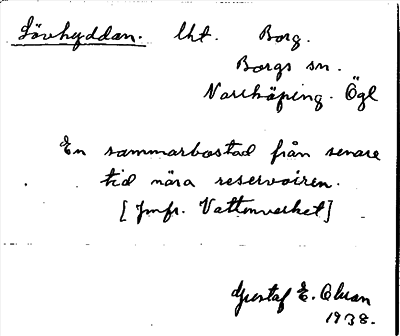 Lövhyddan. lht. Borg.
Borgs sn.
Norrköping. Ögl
En sommarbostad från senare
tid nära reservoiren.
[Jmfr. Vattenverket]
Gustaf E. Olson
1938.